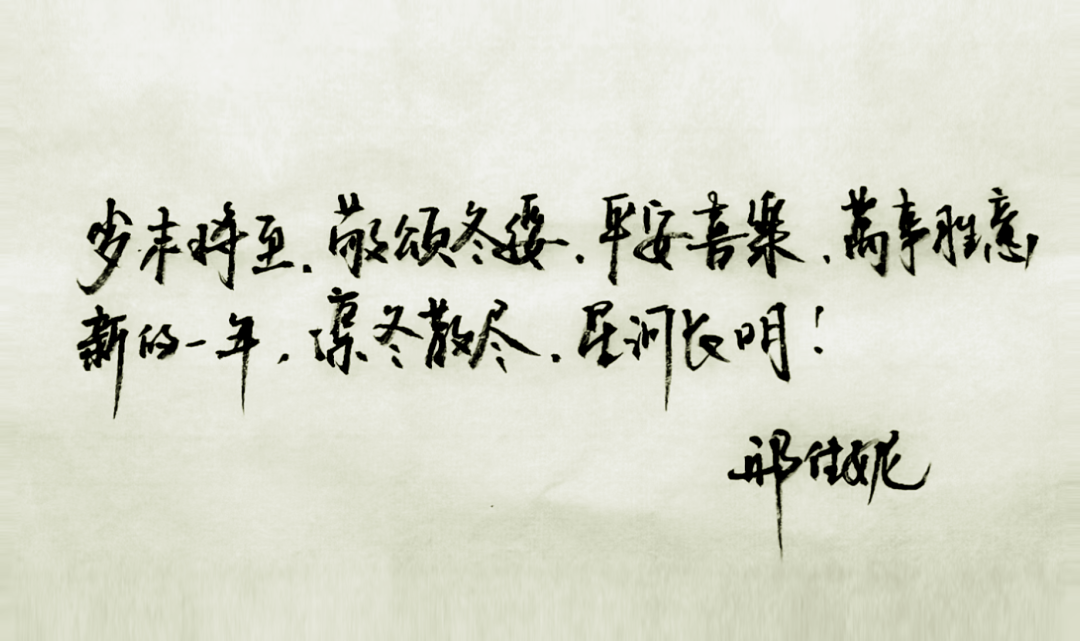 岁末将至，敬颂冬绥，平安喜樂，萬事胜意
新的一年，凛冬散尽，星河长明！
邱佳妮